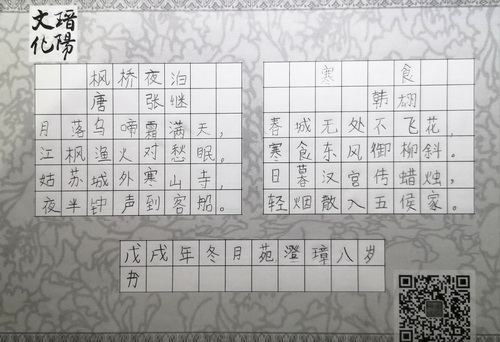 文瑨
化陽
枫桥夜泊
唐 张继
月落乌啼霜满天，
江枫渔火对愁眠。
姑苏城外寒山寺，
夜半钟声到客船。
寒食
韩翃
春城无处不飞花，
寒食东风御柳斜。
日暮汉宫传蜡烛，
轻烟散入五侯家。
戊戌年冬月苑澄璋八岁